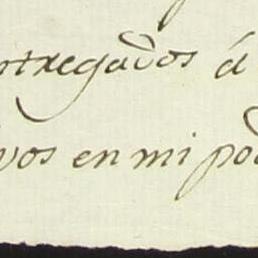 ntregados á
vos en mi pod